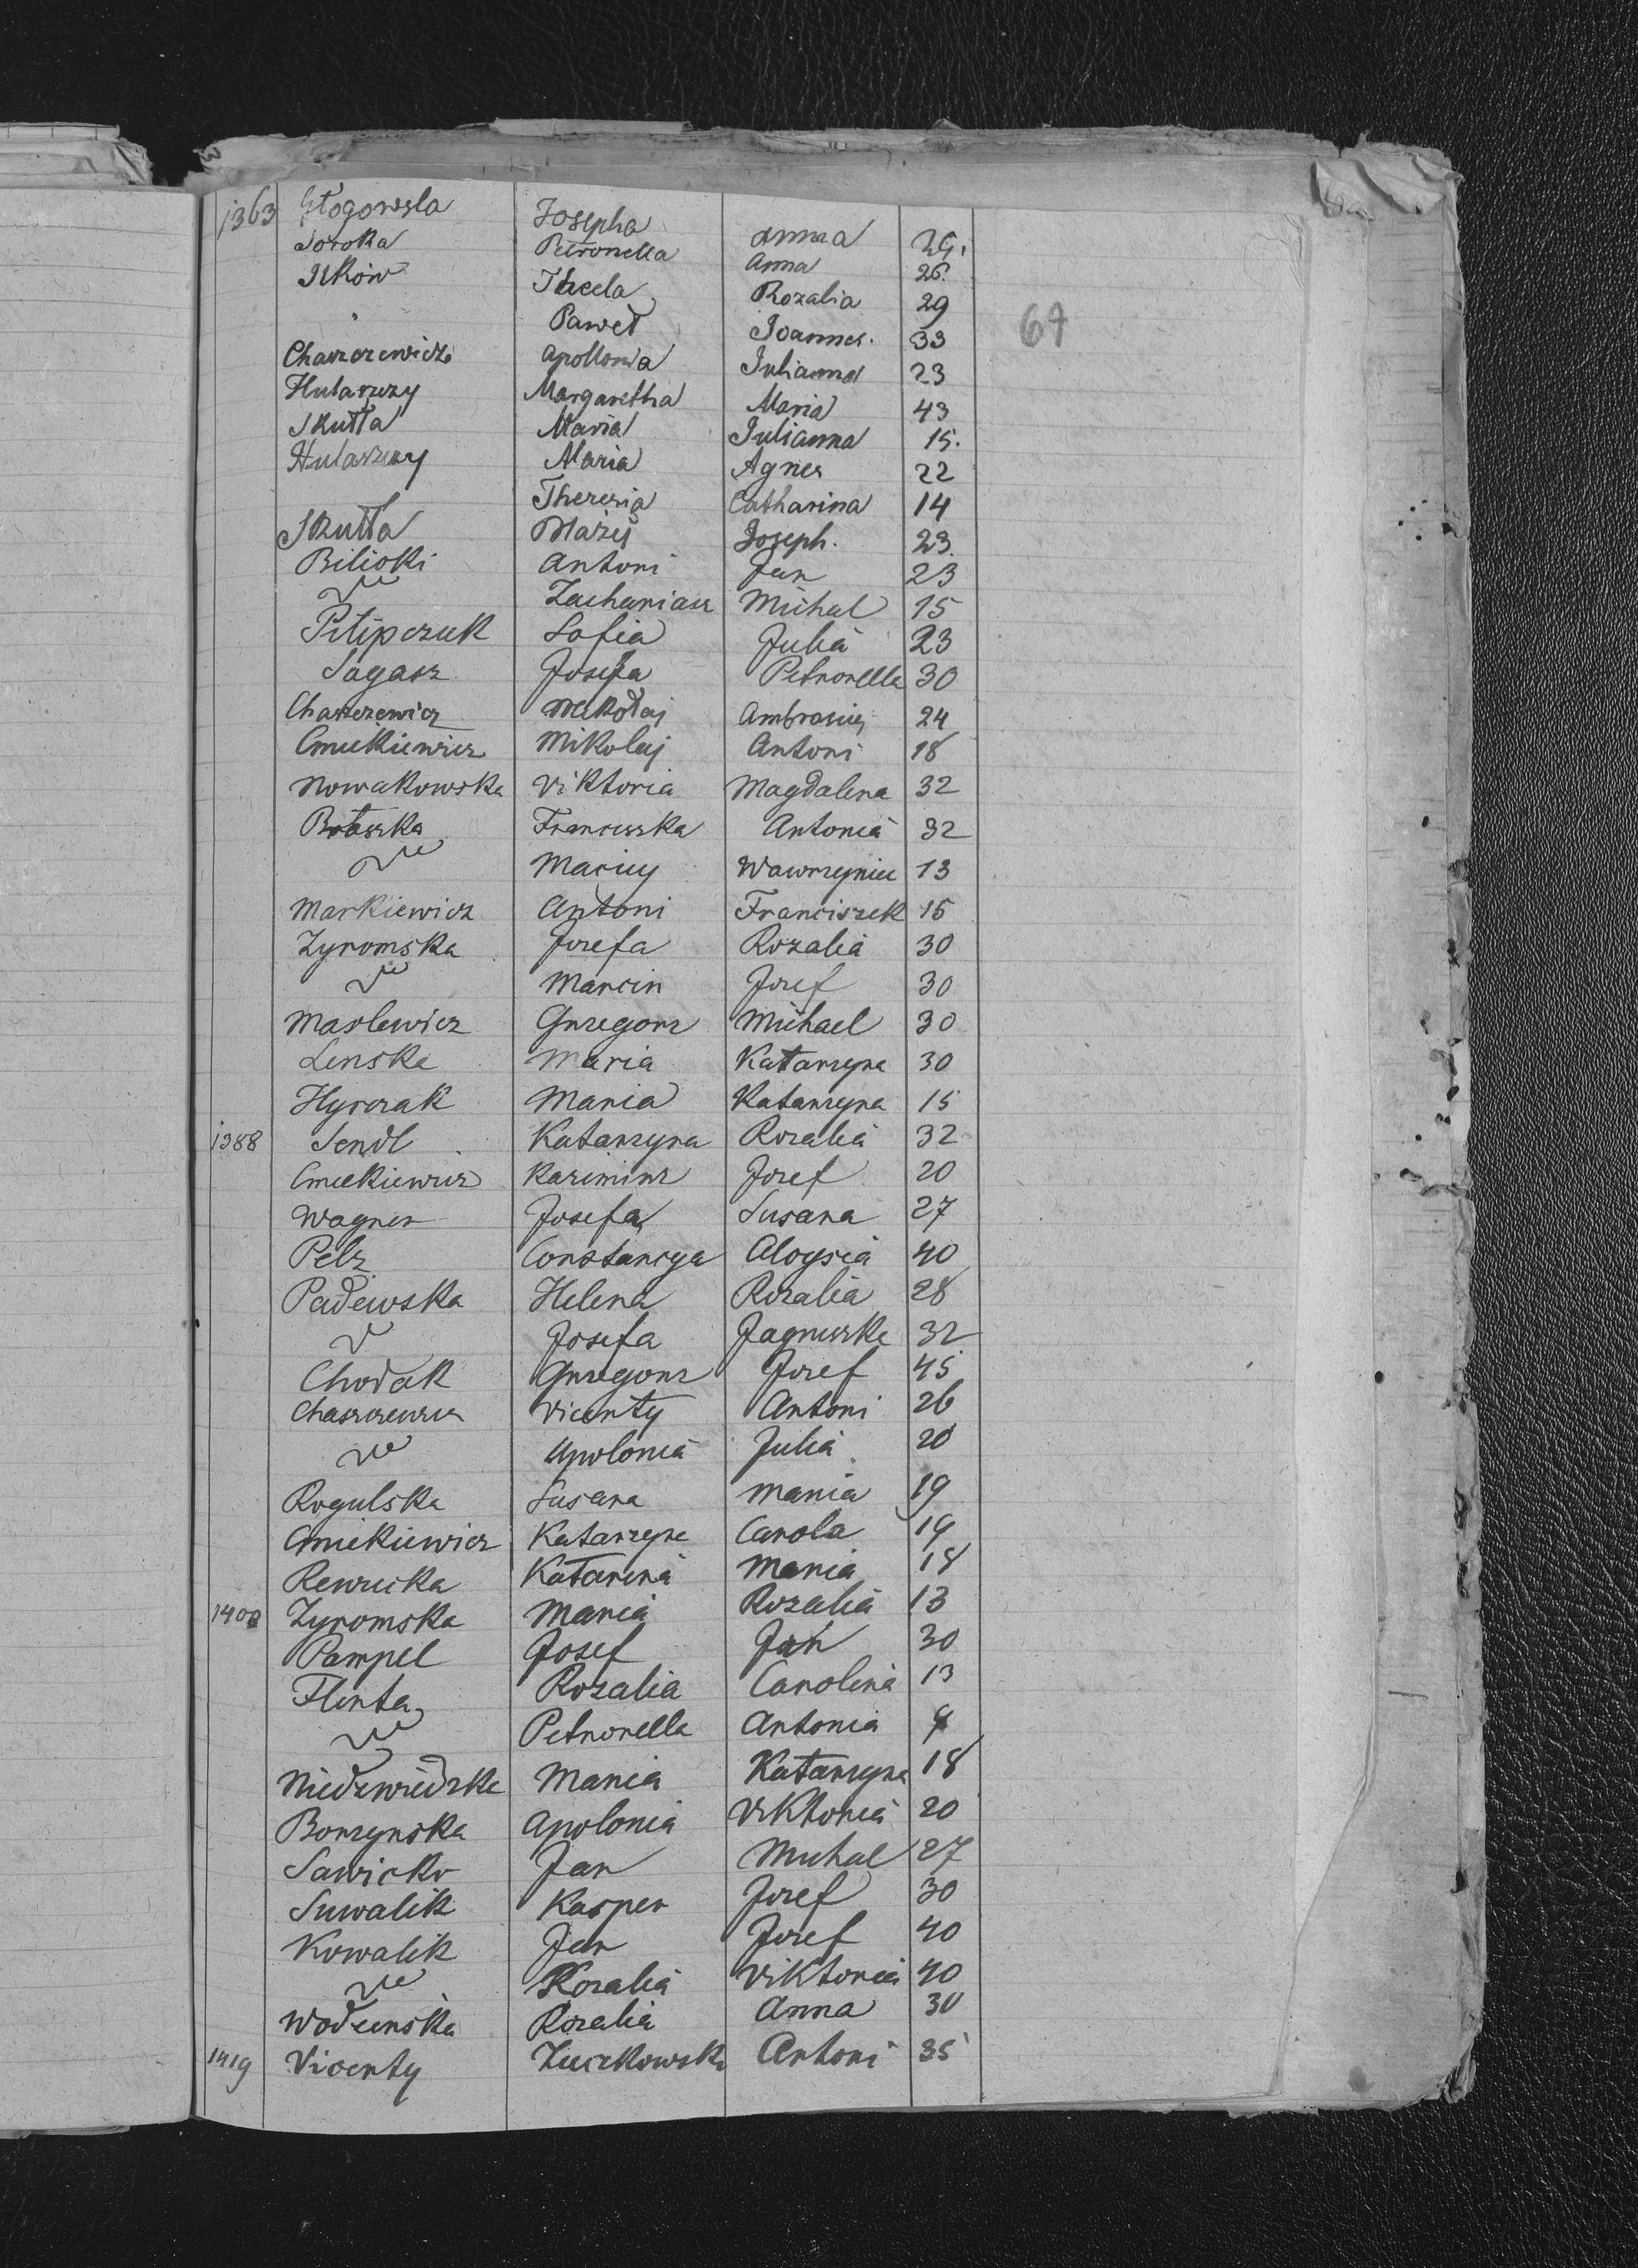 1363 Głogowska Josepha Anna 29.
Soroka Petronella Anna 26.
Ilków Thecla Rozalia 29
" Paweł Joannes. 33
67
Chaszczewicz Apollonia Julianna 23
Hularzezy Margaretha Maria 43
Skutta Maria Julianna 15.
Hularzezy Maria Agnes 22
Theresia Catharina 14
Skutta Błażej Joseph. 23.
Bilioki Antoni Jan 23
" Zachariasz Michal 15
Pilipczuk Sofia Julia 23
Sagasz Josefa Petronella 30
Chaszczewicz Mikołaj Ambrosius 24
Cmiekiewicz Mikolaj Antoni 18
Nowakowska Viktoria Magdalena 32
Botaszka Franciszka Antonia 32
" Maciey Wawrzyniec 13
Markiewicz Antoni Franciszek 15
Zyromska Jozefa Rozalia 30
" Marcin Jozef 30
Maslewicz Grzegorz Michael 30
Lenska Maria Katarzyna 30
Hyrczak Maria Katarzyna 15
1388 Sendl Katarzyna Rozalia 32
Cmiekiewicz Kazimirz Jozef 20
Wagner Josefa Susana 27
Pelz Constancya Aloysia 40
Padewska Helena Rozalia 28
" Josefa Jagnieszka 32
Chodak Grzegorz Jozef 45
Chaszczewicz Vicenty Antoni 26
" Apolonia Julia 20
Rogulska Susana Maria 19
Cmiekiewicz Katarzyna Carola 19
Rewucka Katarina Maria 18
1400 Zyromska Maria Rozalia 13
Pampel Josef Jan 30
Flinta Rozalia Carolina 13
" Petronella Antonia 9
Niedzwiedzka Maria Katarzyna 18
Borzynska Apolonia Viktoria 20
Sawicko Jan Michal 27
Suwalik Kasper Jozef 30
Kowalik Jan Jozef 40
" Rozalia Viktoria 40
Wodzinska Rozalia Anna 30
1419 Vicenty Zuczkowska Antoni 35